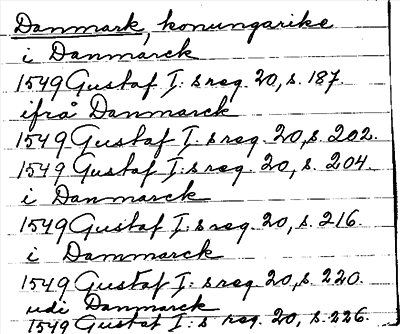 Danmark, konungarike
i Danmarck
1549 Gustaf I: s reg. 20, s. 187.
ifrå Danmarck
1549 Gustaf I: s reg. 20, s. 202.
1549 Gustaf I: s reg. 20, s. 204.
i Danmarck
1549 Gustaf I: s reg. 20, s. 216.
i Dammarck
1549 Gustaf I: s reg. 20, s. 220.
udi Danmarck
1549 Gustaf I: s reg. 20, s. 226.